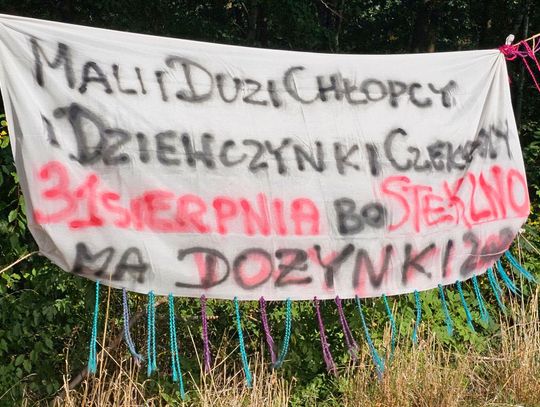 MALI I DUZI CHŁOPCY
I DZIEWCZYNKI CZEKAMY
31 SIERPNIA BO STEKLNO
MA DOŻYNKI